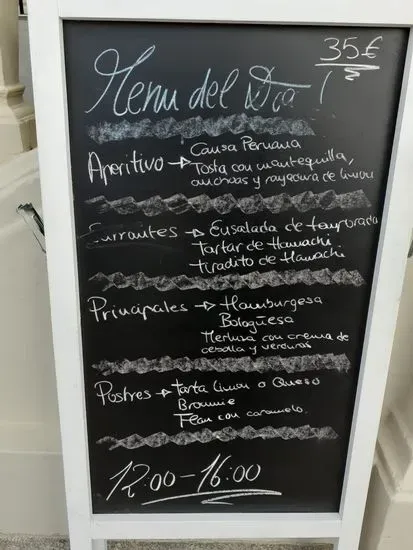 35€
Menu del Dia!
Causa Peruana
Aperitivo → Tosta con mantequilla,
anchoas y rayadura de limon
Entrantes → Ensalada de temporada
Tartar de Hamachi.
Tiradito de Hamachi.
Principales → Hamburgesa
Bologüesa
Merluza con crema de
cebolla y verduras
Postres → Tarta Limon o Queso
Brownie
Flan con caramelo.
12:00-16:00